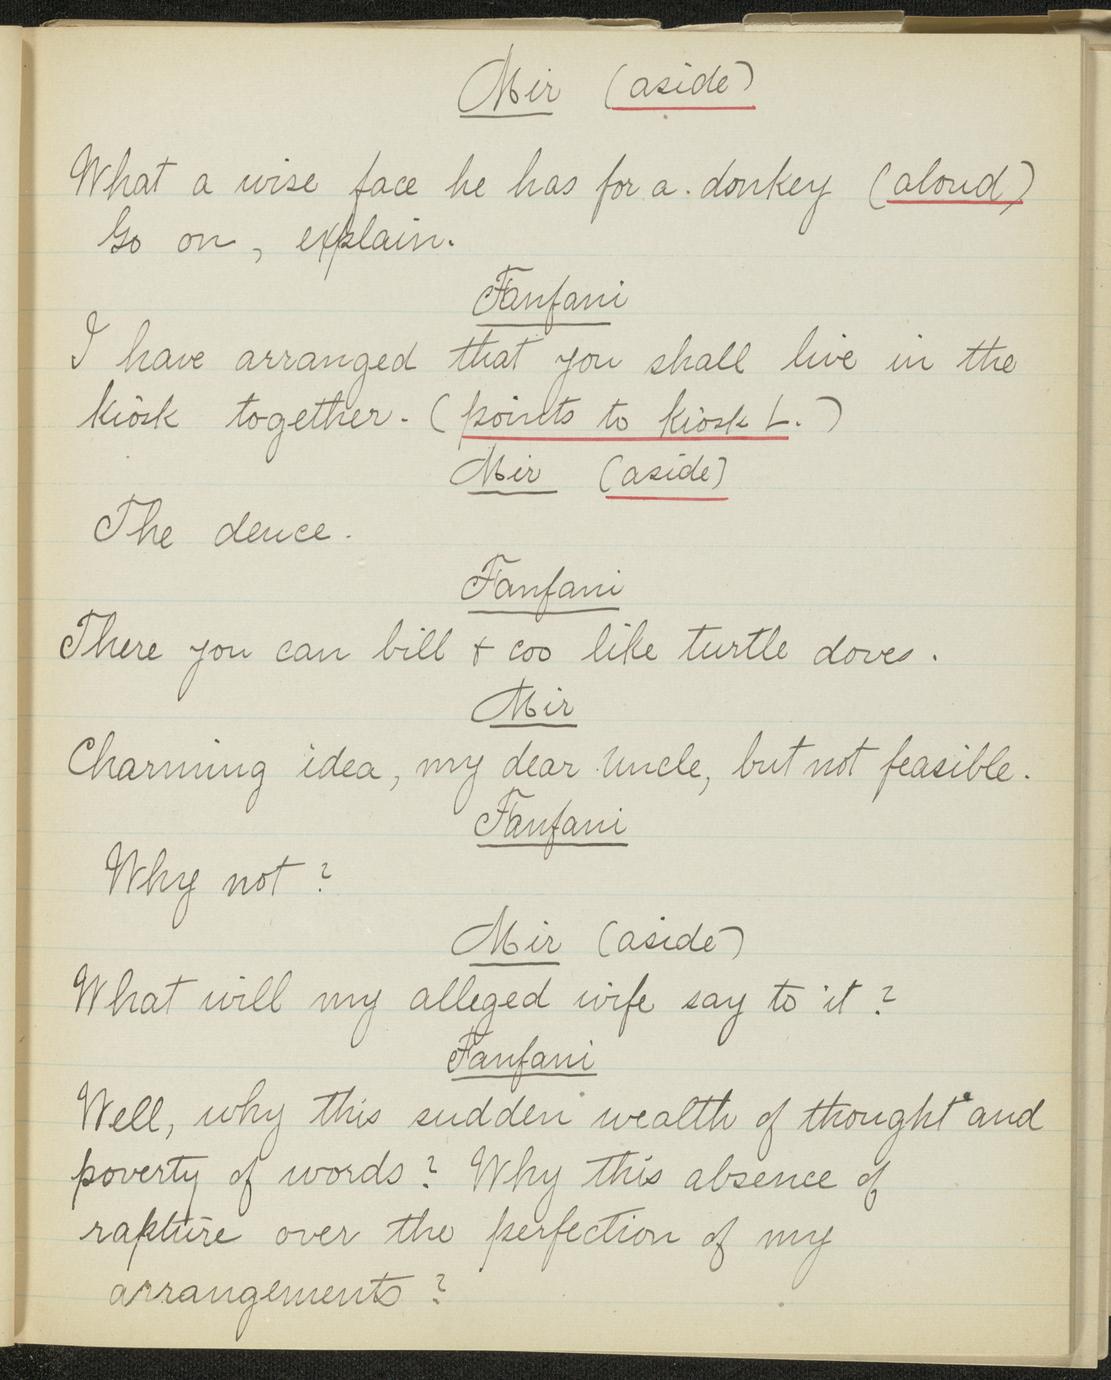 Mir (aside)
What a wise face he has for a donkey (aloud)
Go on, explain.
Fanfani
I have arranged that you shall live in the
kiosk together. (points to kiosk L.)
Mir (aside)
The deuce.
Fanfani
There you can bill & coo like turtle doves.
Mir
Charming idea, my dear Uncle, but not feasible.
Fanfani
Why not?
Mir (aside)
What will my alleged wife say to it?
Fanfani
Well, why this sudden wealth of thought and
poverty of words? Why this absence of
rapture over the perfection of my
arrangements?